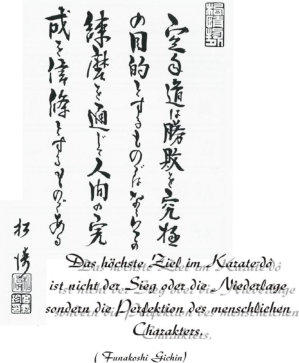 空手道は勝敗を究極
の目的とするものではな
練磨を通じて人間の完
成を信條とするものである
松濤
Das höchste Ziel im Karate-dô
ist nicht der Sieg oder die Niederlage
sondern die Perfektion des menschlichen
Charakters.
( Funakoshi Gichin)